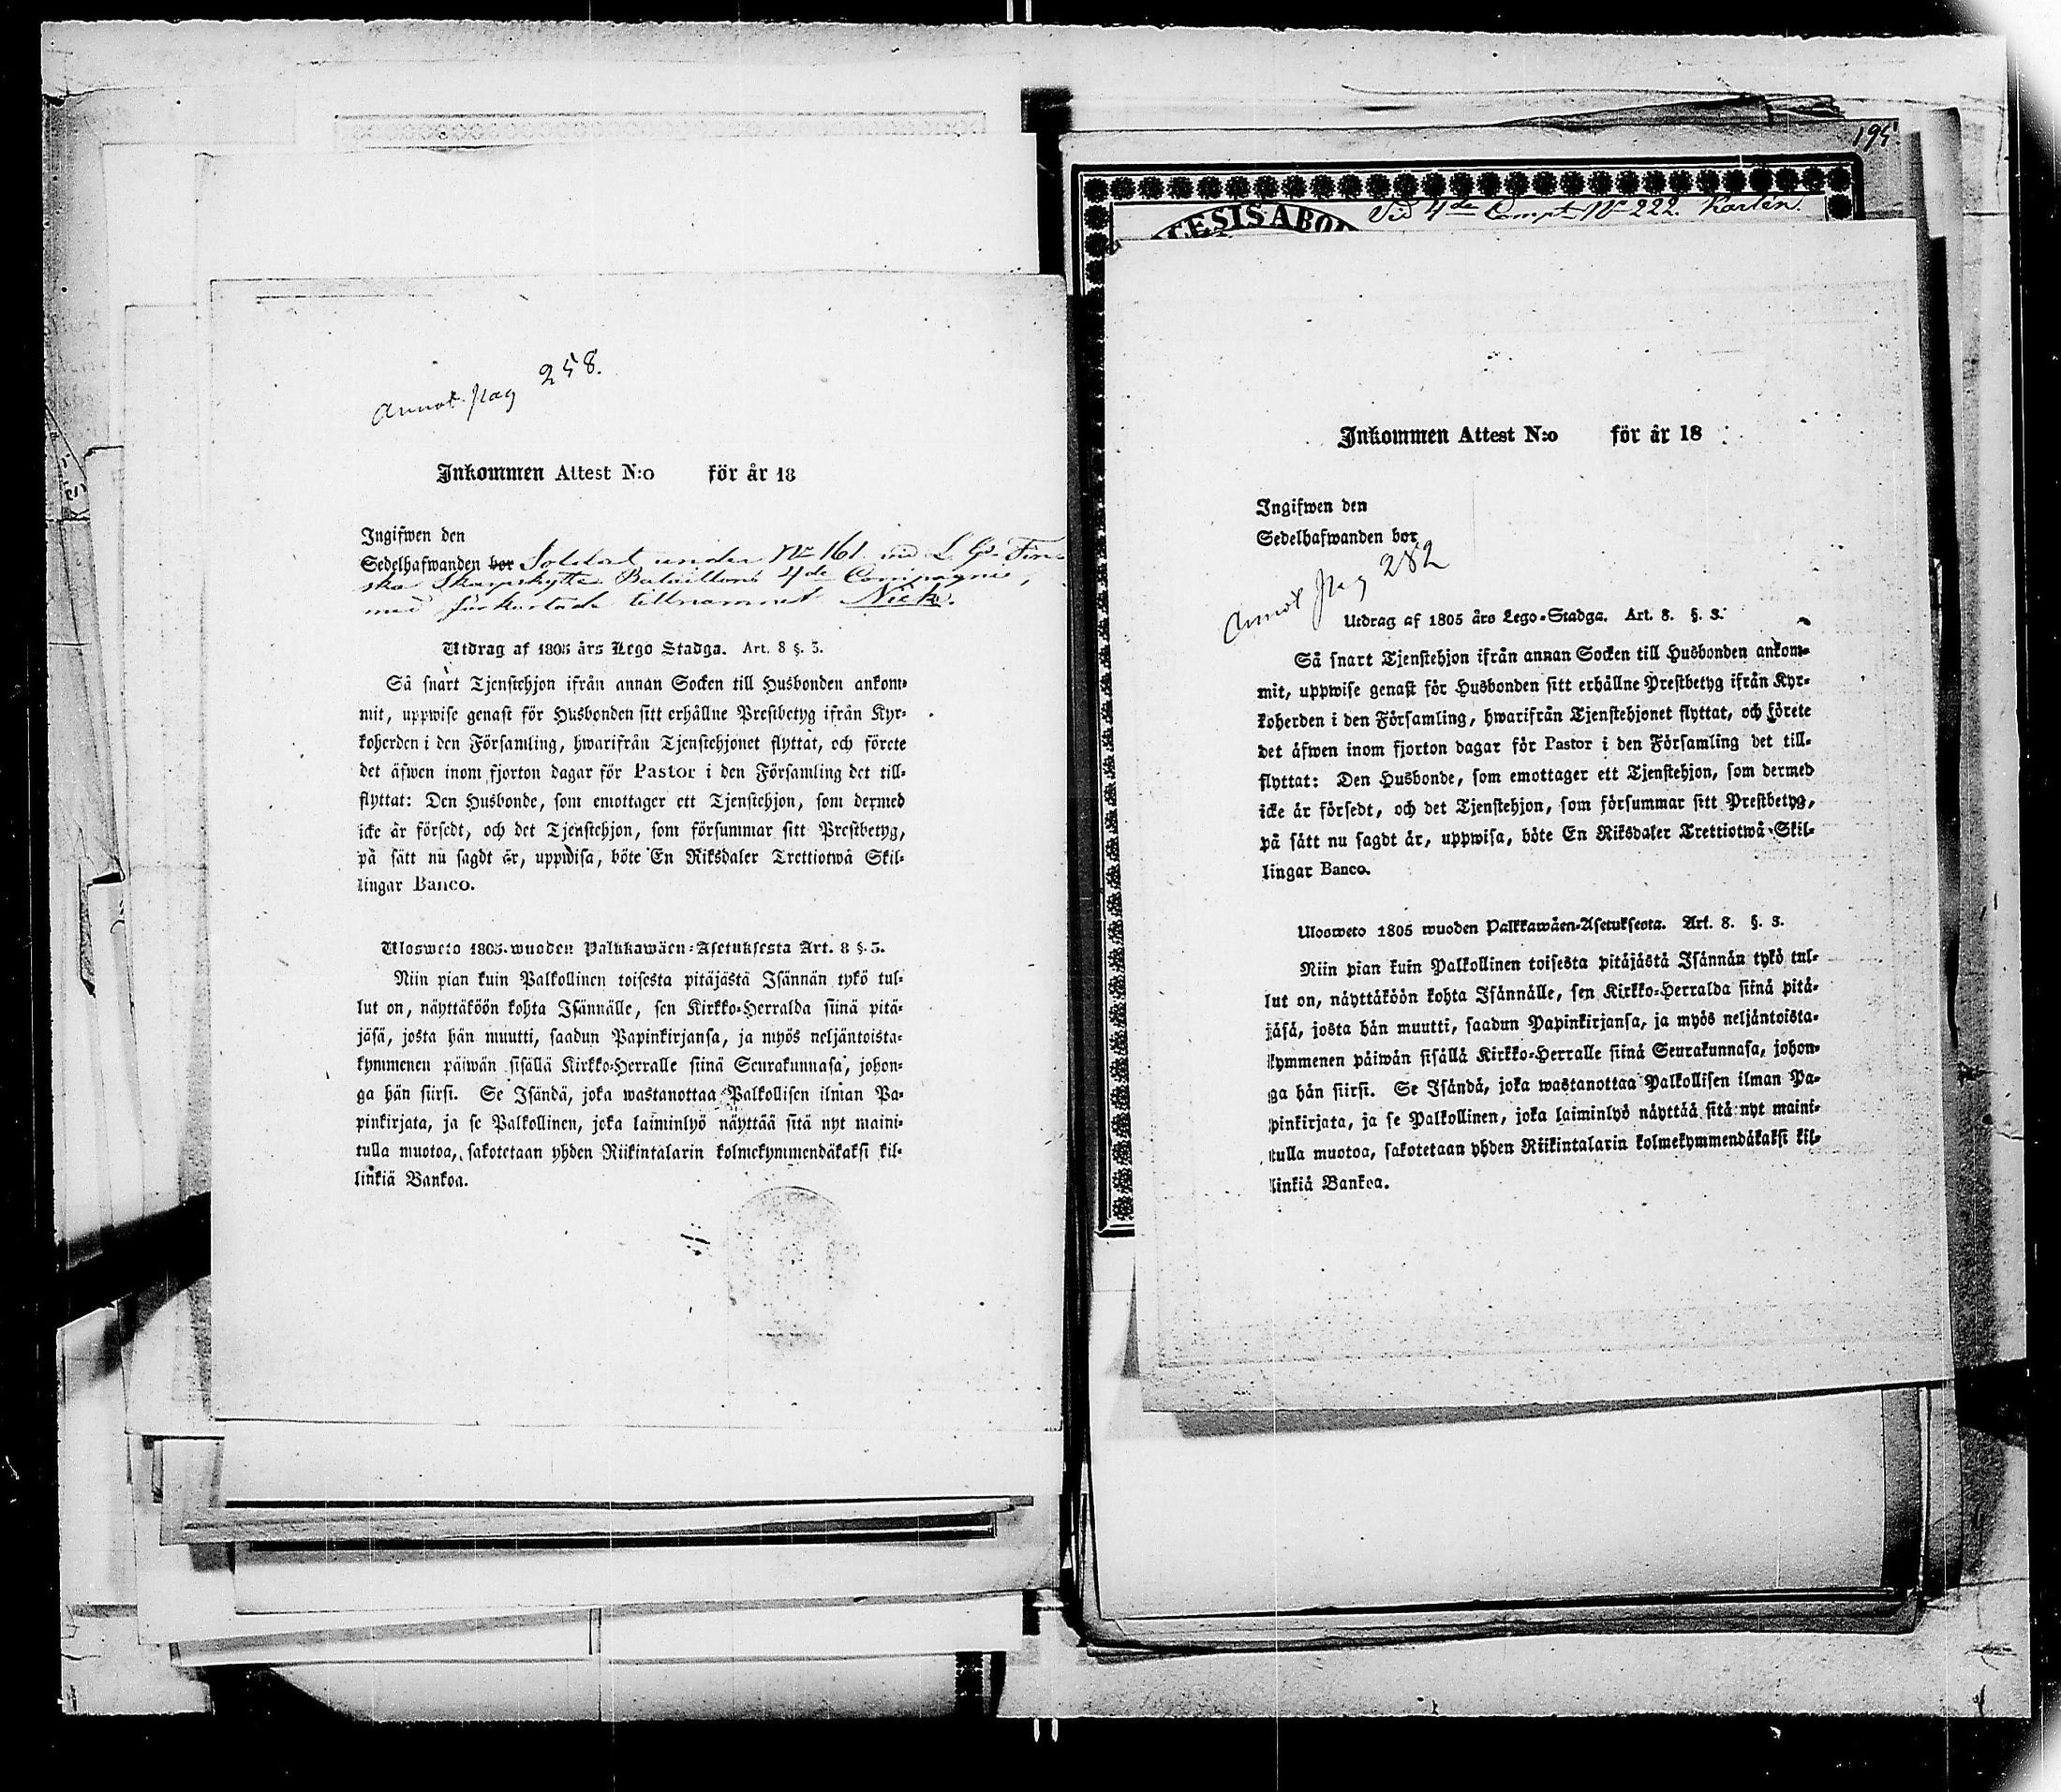 Annot. pag 258.
Inkommen Attest N:o för år 18
Ingifwen den
Sedelhafwanden bor Soldat under No 161 vid L. G. Fin-
ska Skarpskytte Bataillons 4de Compagnie,
med förkortade tillnamnet Nick.
Utdrag af 1805 års Lego Stadga. Art. 8 §. 3.
Så snart Tjenstehjon ifrån annan Socken till Husbonden ankom-
mit, uppwise genast för Husbonden sitt erhållne Prestbetyg ifrån Kyr-
koherden i den Församling, hwarifrån Tjenstehjonet flyttat, och förete
det äfwen inom fjorton dagar för Pastor i den Församling det till-
flyttat: Den Husbonde, som emottager ett Tjenstehjon, som dermed
icke är försedt, och det Tjenstehjon, som försummar sitt Prestbetyg,
på sätt nu sagdt är, uppwisa, böte En Riksdaler Trettiotwå Skil-
lingar Banco.
Ulosweto 1805 wuoden Palkkawäen-Asetuksesta Art. 8 §. 3.
Niin pian kuin Palkollinen toisesta pitäjästä Isännän tykö tul-
lut on, näyttäköön kohta Isännälle, sen Kirkko-Herralda siinä pitä-
jäsä, josta hän muutti, saadun Papinkirjansa, ja myös neljäntoista-
kymmenen päiwän sisällä Kirkko-Herralle siinä Seurakunnasa, johon-
ga hän siirsi. Se Isändä, joka wastanottaa Palkollisen ilman Pa-
pinkirjata, ja se Palkollinen, joka laiminlyö näyttää sitä nyt maini-
tulla muotoa, sakotetaan yhden Riikintalarin kolmekymmendäkaksi kil-
linkiä Bankoa.
195.
Vid 4de Comp. No 222. Karlén.
CESIS ABO
Inkommen Attest N:o för år 18
Ingifwen den
Sedelhafwanden bor
Annot pag 282
Utdrag af 1805 års Lego-Stadga. Art. 8. §. 3.
Så snart Tjenstehjon ifrån annan Socken till Husbonden ankom-
mit, uppwise genast för Husbonden sitt erhållne Prestbetyg ifrån Kyr-
koherden i den Församling, hwarifrån Tjenstehjonet flyttat, och förete
det äfwen inom fjorton dagar för Pastor i den Församling det till-
flyttat: Den Husbonde, som emottager ett Tjenstehjon, som dermed
icke är försedt, och det Tjenstehjon, som försummar sitt Prestbetyg,
på sätt nu sagdt är, uppwisa, böte En Riksdaler Trettiotwå Skil-
lingar Banco.
Ulosweto 1805 wuoden Palkkawäen-Asetuksesta. Art. 8. §. 3.
Niin pian kuin Palkollinen toisesta pitäjästä Isännän tykö tul-
lut on, näyttäköön kohta Isännälle, sen Kirkko-Herralda siinä pitä-
jäsä, josta hän muutti, saadun Papinkirjansa, ja myös neljäntoista-
kymmenen päiwän sisällä Kirkko-Herralle siinä Seurakunnasa, johon-
ga hän siirsi. Se Isändä, joka wastanottaa Palkollisen ilman Pa-
pinkirjata, ja se Palkollinen, joka laiminlyö näyttää sitä nyt maini-
tulla muotoa, sakotetaan yhden Riikintalarin kolmekymmendäkaksi kil-
linkiä Bankoa.